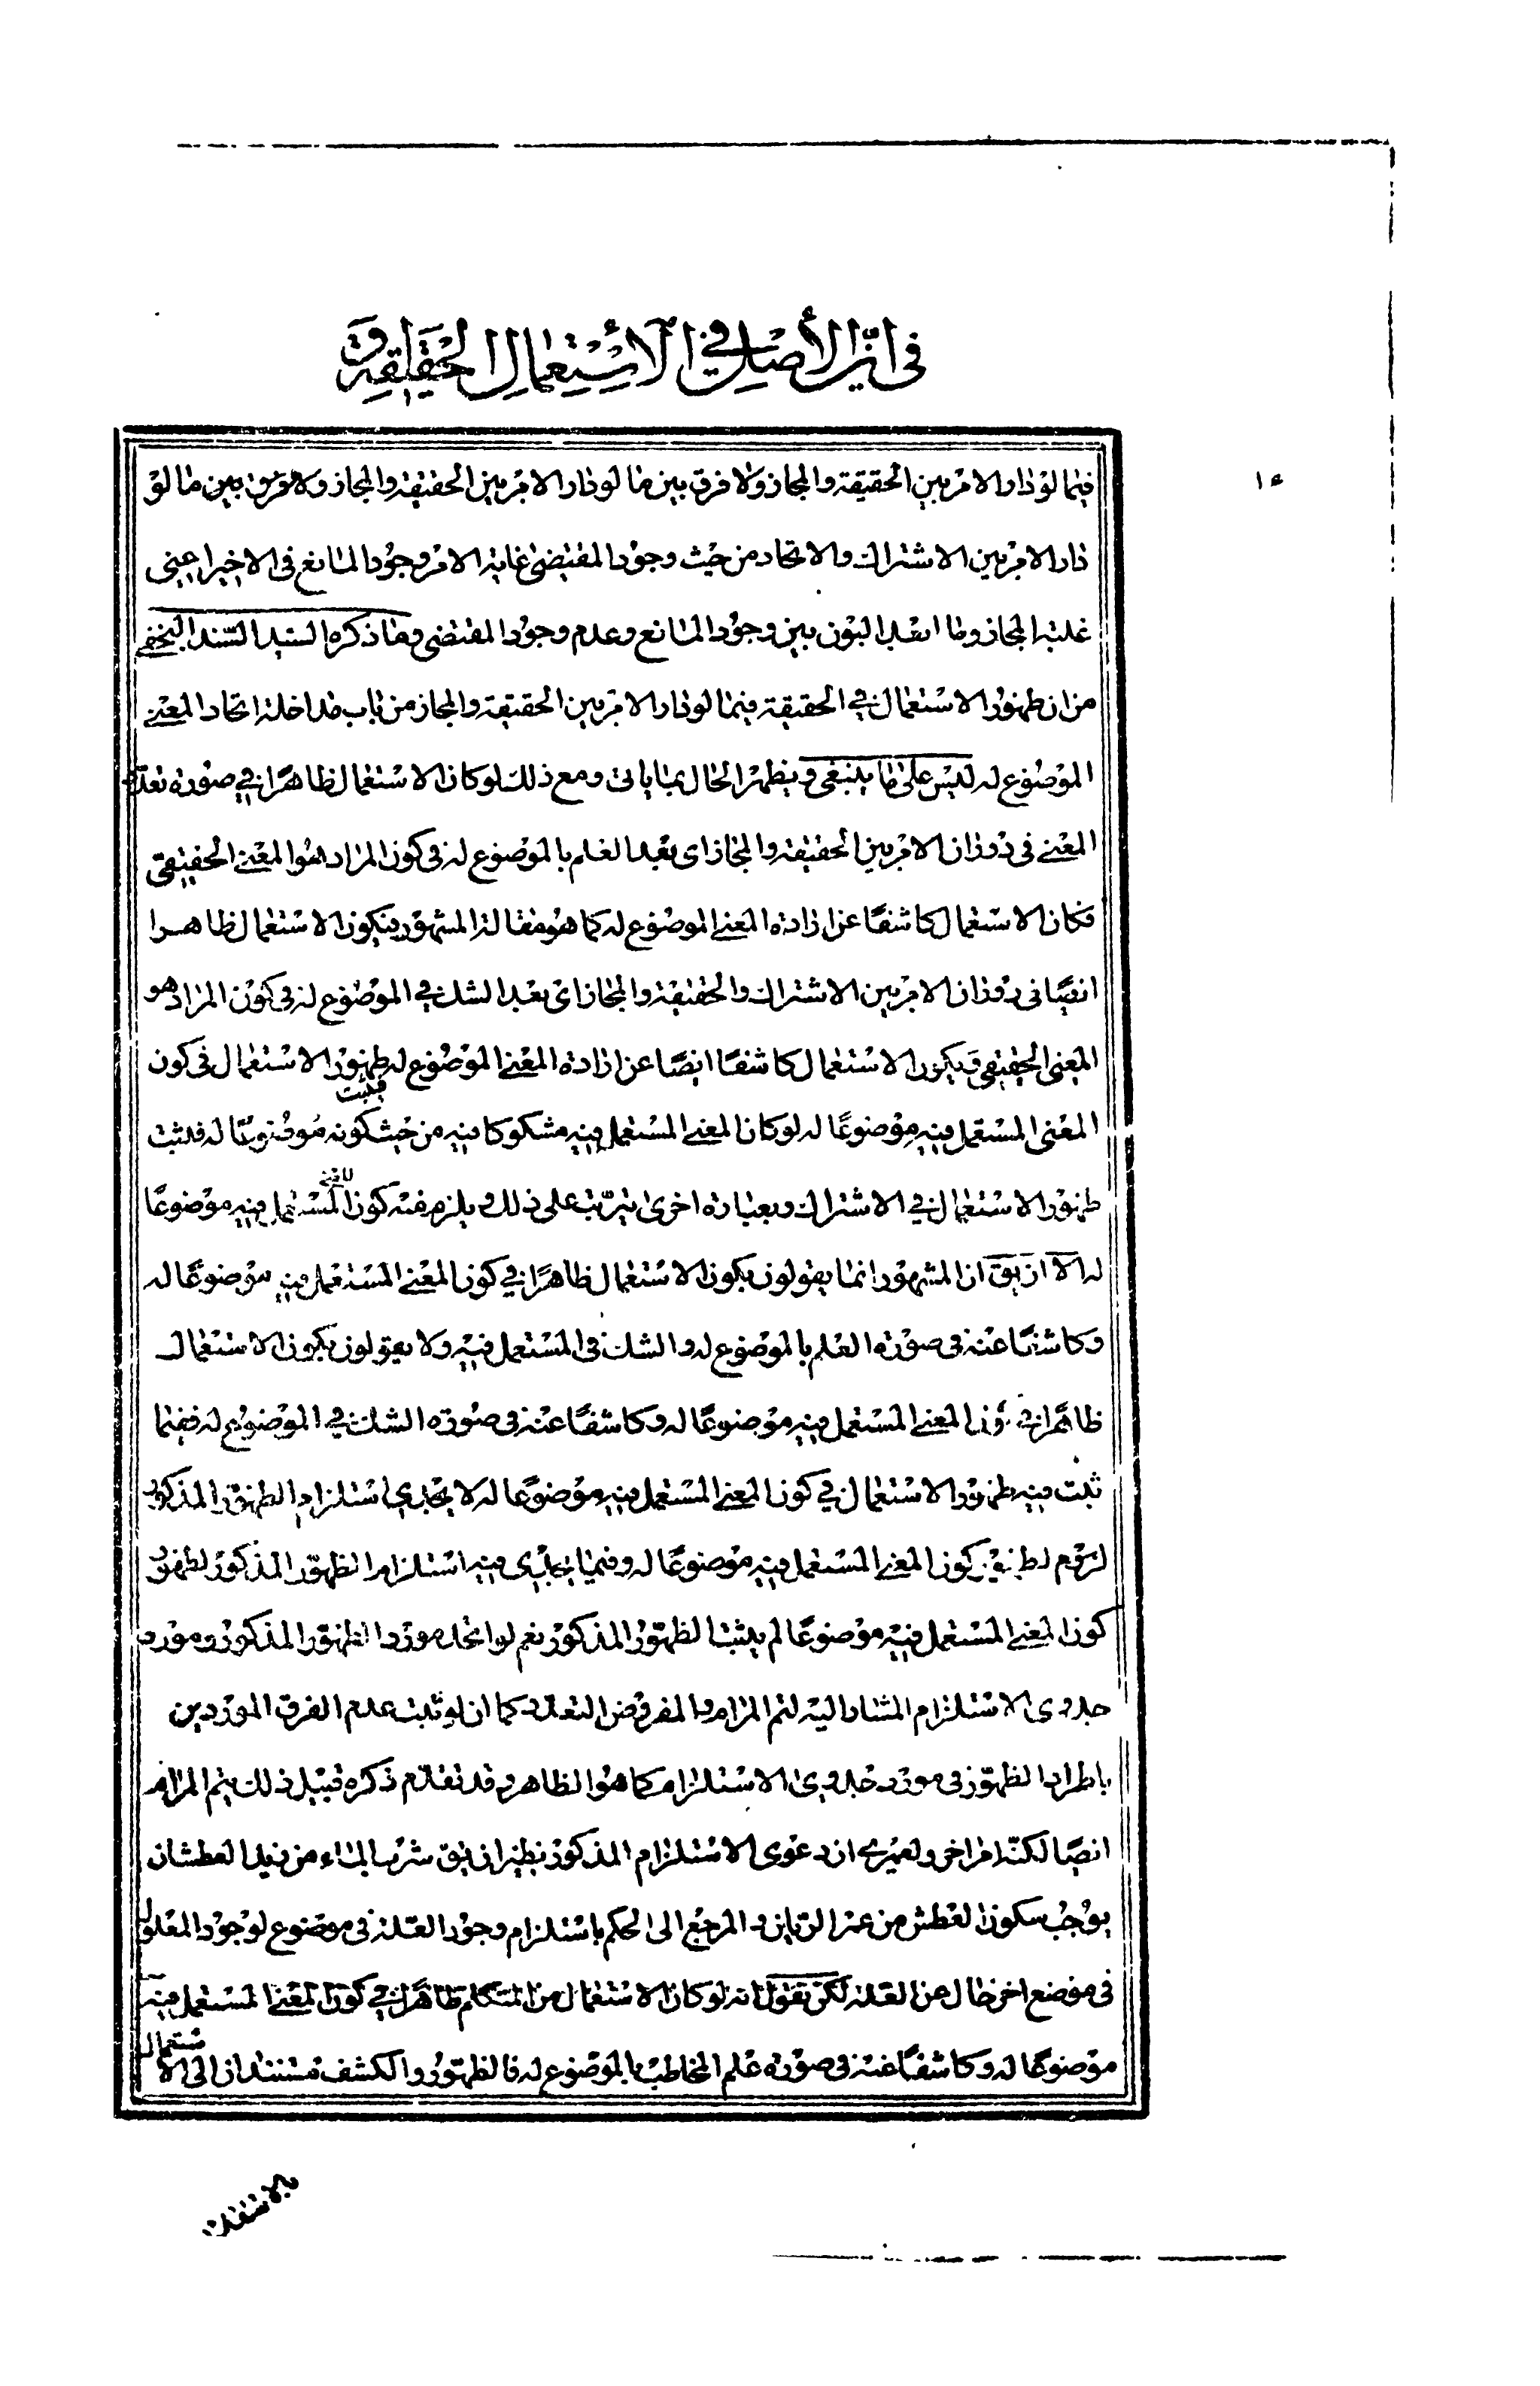 في ان الأصل في الاستعمال الحقيقة
فيما لو دار الامر بين الحقيقة والمجاز ولا فرق بين ما لو دار الامر بين الحقيقة والمجاز ولا فرق بين ما لو
دار الامر بين الاشتراك والاتحاد من حيث وجود المقتضى غاية الامر وجود المانع في الاخير اعني
غلبة المجاز وما ابعد البون بين وجود المانع وعدم وجود المقتضى وما ذكره السيد السند النجفي
من ان ظهور الاستعمال في الحقيقة فيما لو دار الامر بين الحقيقة والمجاز من باب مداخلة اتحاد المعنى
الموضوع له ليس على ما ينبغي ويظهر الحال بما ياتي ومع ذلك لو كان الاستعمال ظاهرا في صورة تعدد
المعنى في دوران الامر بين الحقيقة والمجاز اي بعد العلم بالموضوع له في كون المراد هو المعنى الحقيقي
فكان الاستعمال كاشفا عن ارادة المعنى الموضوع له كما هو مقالة المشهور فيكون الاستعمال ظاهرا
ايضا في دوران الامر بين الاشتراك والحقيقة والمجاز اي بعد الشك في الموضوع له في كون المراد هو
المعنى الحقيقي فيكون الاستعمال كاشفا ايضا عن ارادة المعنى الموضوع له فيثبت ظهور الاستعمال في كون
المعنى المستعمل فيه موضوعا له لو كان المعنى المستعمل فيه مشكوكا فيه من حيث كونه موضوعا له فيثبت
ظهور الاستعمال في الاشتراك وبعبارة اخرى يترتب على ذلك ويلزم منه كون المستعمل فيه موضوعا
له الا ان يق ان المشهور انما يقولون بكون الاستعمال ظاهرا في كون المعنى المستعمل فيه موضوعا له
وكاشفا عنه في صورة العلم بالموضوع له والشك في المستعمل فيه ولا يقولون بكون الاستعمال
ظاهرا في كون المعنى المستعمل فيه موضوعا له وكاشفا عنه في صورة الشك في الموضوع له ففيما
ثبت فيه ظهور الاستعمال في كون المعنى المستعمل فيه موضوعا له لا يجدي استلزام الظهور المذكور
لظهور كون المعنى المستعمل فيه موضوعا له وفيما يجدي فيه استلزام الظهور المذكور لظهور
كون المعنى المستعمل فيه موضوعا لم يثبت الظهور المذكور نعم لو اتحد مورد الظهور المذكور ومورد
جدوى الاستلزام المشار اليه لتم المرام والمفروض التعدد كما ان لو ثبت عدم الفرق الموردين
باطراد الظهور في مورد جدوى الاستلزام كما هو الظاهر وقد تقدم ذكره قبيل ذلك يتم المرام
ايضا لكنه امر اخر ولعمري ان دعوى الاستلزام المذكور نظير ان يق شرب الماء من زيد العطشان
يوجب سكون العطش من عمر الريان والمرجع الى الحكم باستلزام وجود العلة في موضوع لوجود المعلول
في موضع اخر خال عن العلة لكن نقول انه لو كان الاستعمال من المتكلم ظاهرا في كون المعنى المستعمل فيه
موضوعا له وكاشفا عنه في صورة علم المخاطب بالموضوع له فالظهور والكشف مستندان الى الاستعمال